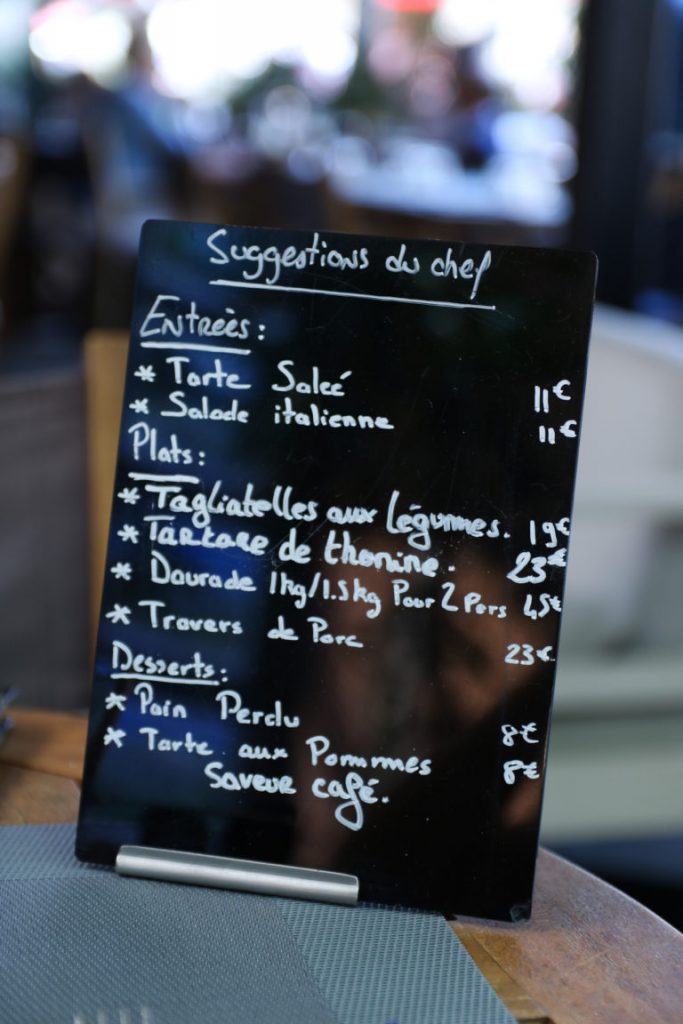 Suggestions du chef
Entrées:
* Tarte Salée 11€
* Salade italienne 11€
Plats:
* Tagliatelles aux légumes. 19€
* Tartare de thonine. 23€
* Daurade 1kg/1.5kg Pour 2 Pers 4,5€
* Travers de Porc 23€
Desserts:
* Pain Perdu 8€
* Tarte aux Pommes 8€
Saveur café.